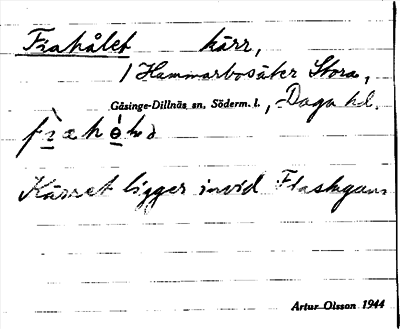 Frahålet kärr,
/ Hammarbosäter Stora,
Gåsinge-Dillnäs sn. Söderm. l., Daga hd.
Kärret ligger invid
Artur Olsson 1944